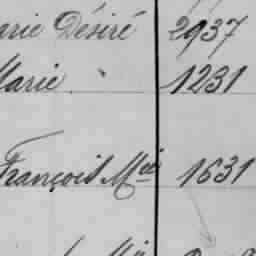 arie Désiré 2937
Marie 1231
François Mie 1631